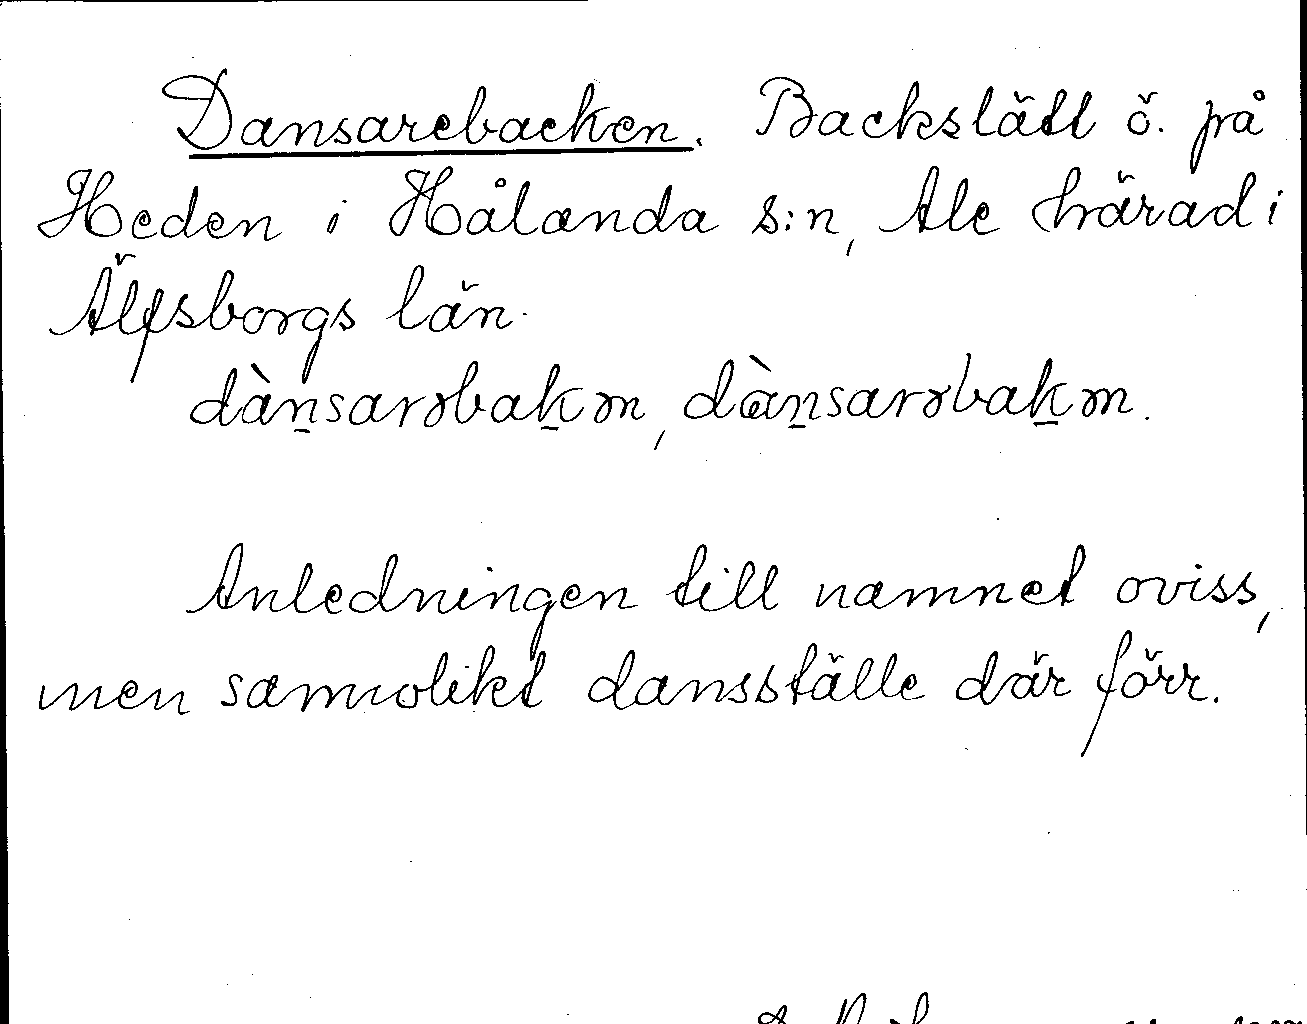 Dansarebacken. Backslätt ö. på
Heden i Hålanda s:n, Ale härad i
Älfsborgs län.
dànsarəbakən, dànsarəbakən.
Anledningen till namnet oviss,
men sannolikt dansställe där förr.